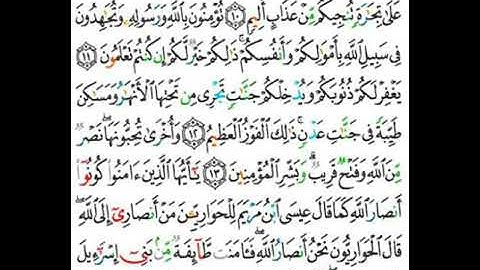 عَلَىٰ تِجَٰرَةٍ تُنجِيكُم مِّنْ عَذَابٍ أَلِيمٍ ۝١٠ تُؤْمِنُونَ بِٱللَّهِ وَرَسُولِهِۦ وَتُجَٰهِدُونَ
فِى سَبِيلِ ٱللَّهِ بِأَمْوَٰلِكُمْ وَأَنفُسِكُمْ ۚ ذَٰلِكُمْ خَيْرٌ لَّكُمْ إِن كُنتُمْ تَعْلَمُونَ ۝١١
يَغْفِرْ لَكُمْ ذُنُوبَكُمْ وَيُدْخِلْكُمْ جَنَّٰتٍ تَجْرِى مِن تَحْتِهَا ٱلْأَنْهَٰرُ وَمَسَٰكِنَ
طَيِّبَةً فِى جَنَّٰتِ عَدْنٍ ۚ ذَٰلِكَ ٱلْفَوْزُ ٱلْعَظِيمُ ۝١٢ وَأُخْرَىٰ تُحِبُّونَهَا ۖ نَصْرٌ
مِّنَ ٱللَّهِ وَفَتْحٌ قَرِيبٌ ۗ وَبَشِّرِ ٱلْمُؤْمِنِينَ ۝١٣ يَٰٓأَيُّهَا ٱلَّذِينَ ءَامَنُوا۟ كُونُوٓا۟
أَنصَارَ ٱللَّهِ كَمَا قَالَ عِيسَى ٱبْنُ مَرْيَمَ لِلْحَوَارِيِّـۧنَ مَنْ أَنصَارِىٓ إِلَى ٱللَّهِ ۖ
قَالَ ٱلْحَوَارِيُّونَ نَحْنُ أَنصَارُ ٱللَّهِ ۖ فَـَٔامَنَت طَّآئِفَةٌ مِّنۢ بَنِىٓ إِسْرَٰٓءِيلَ